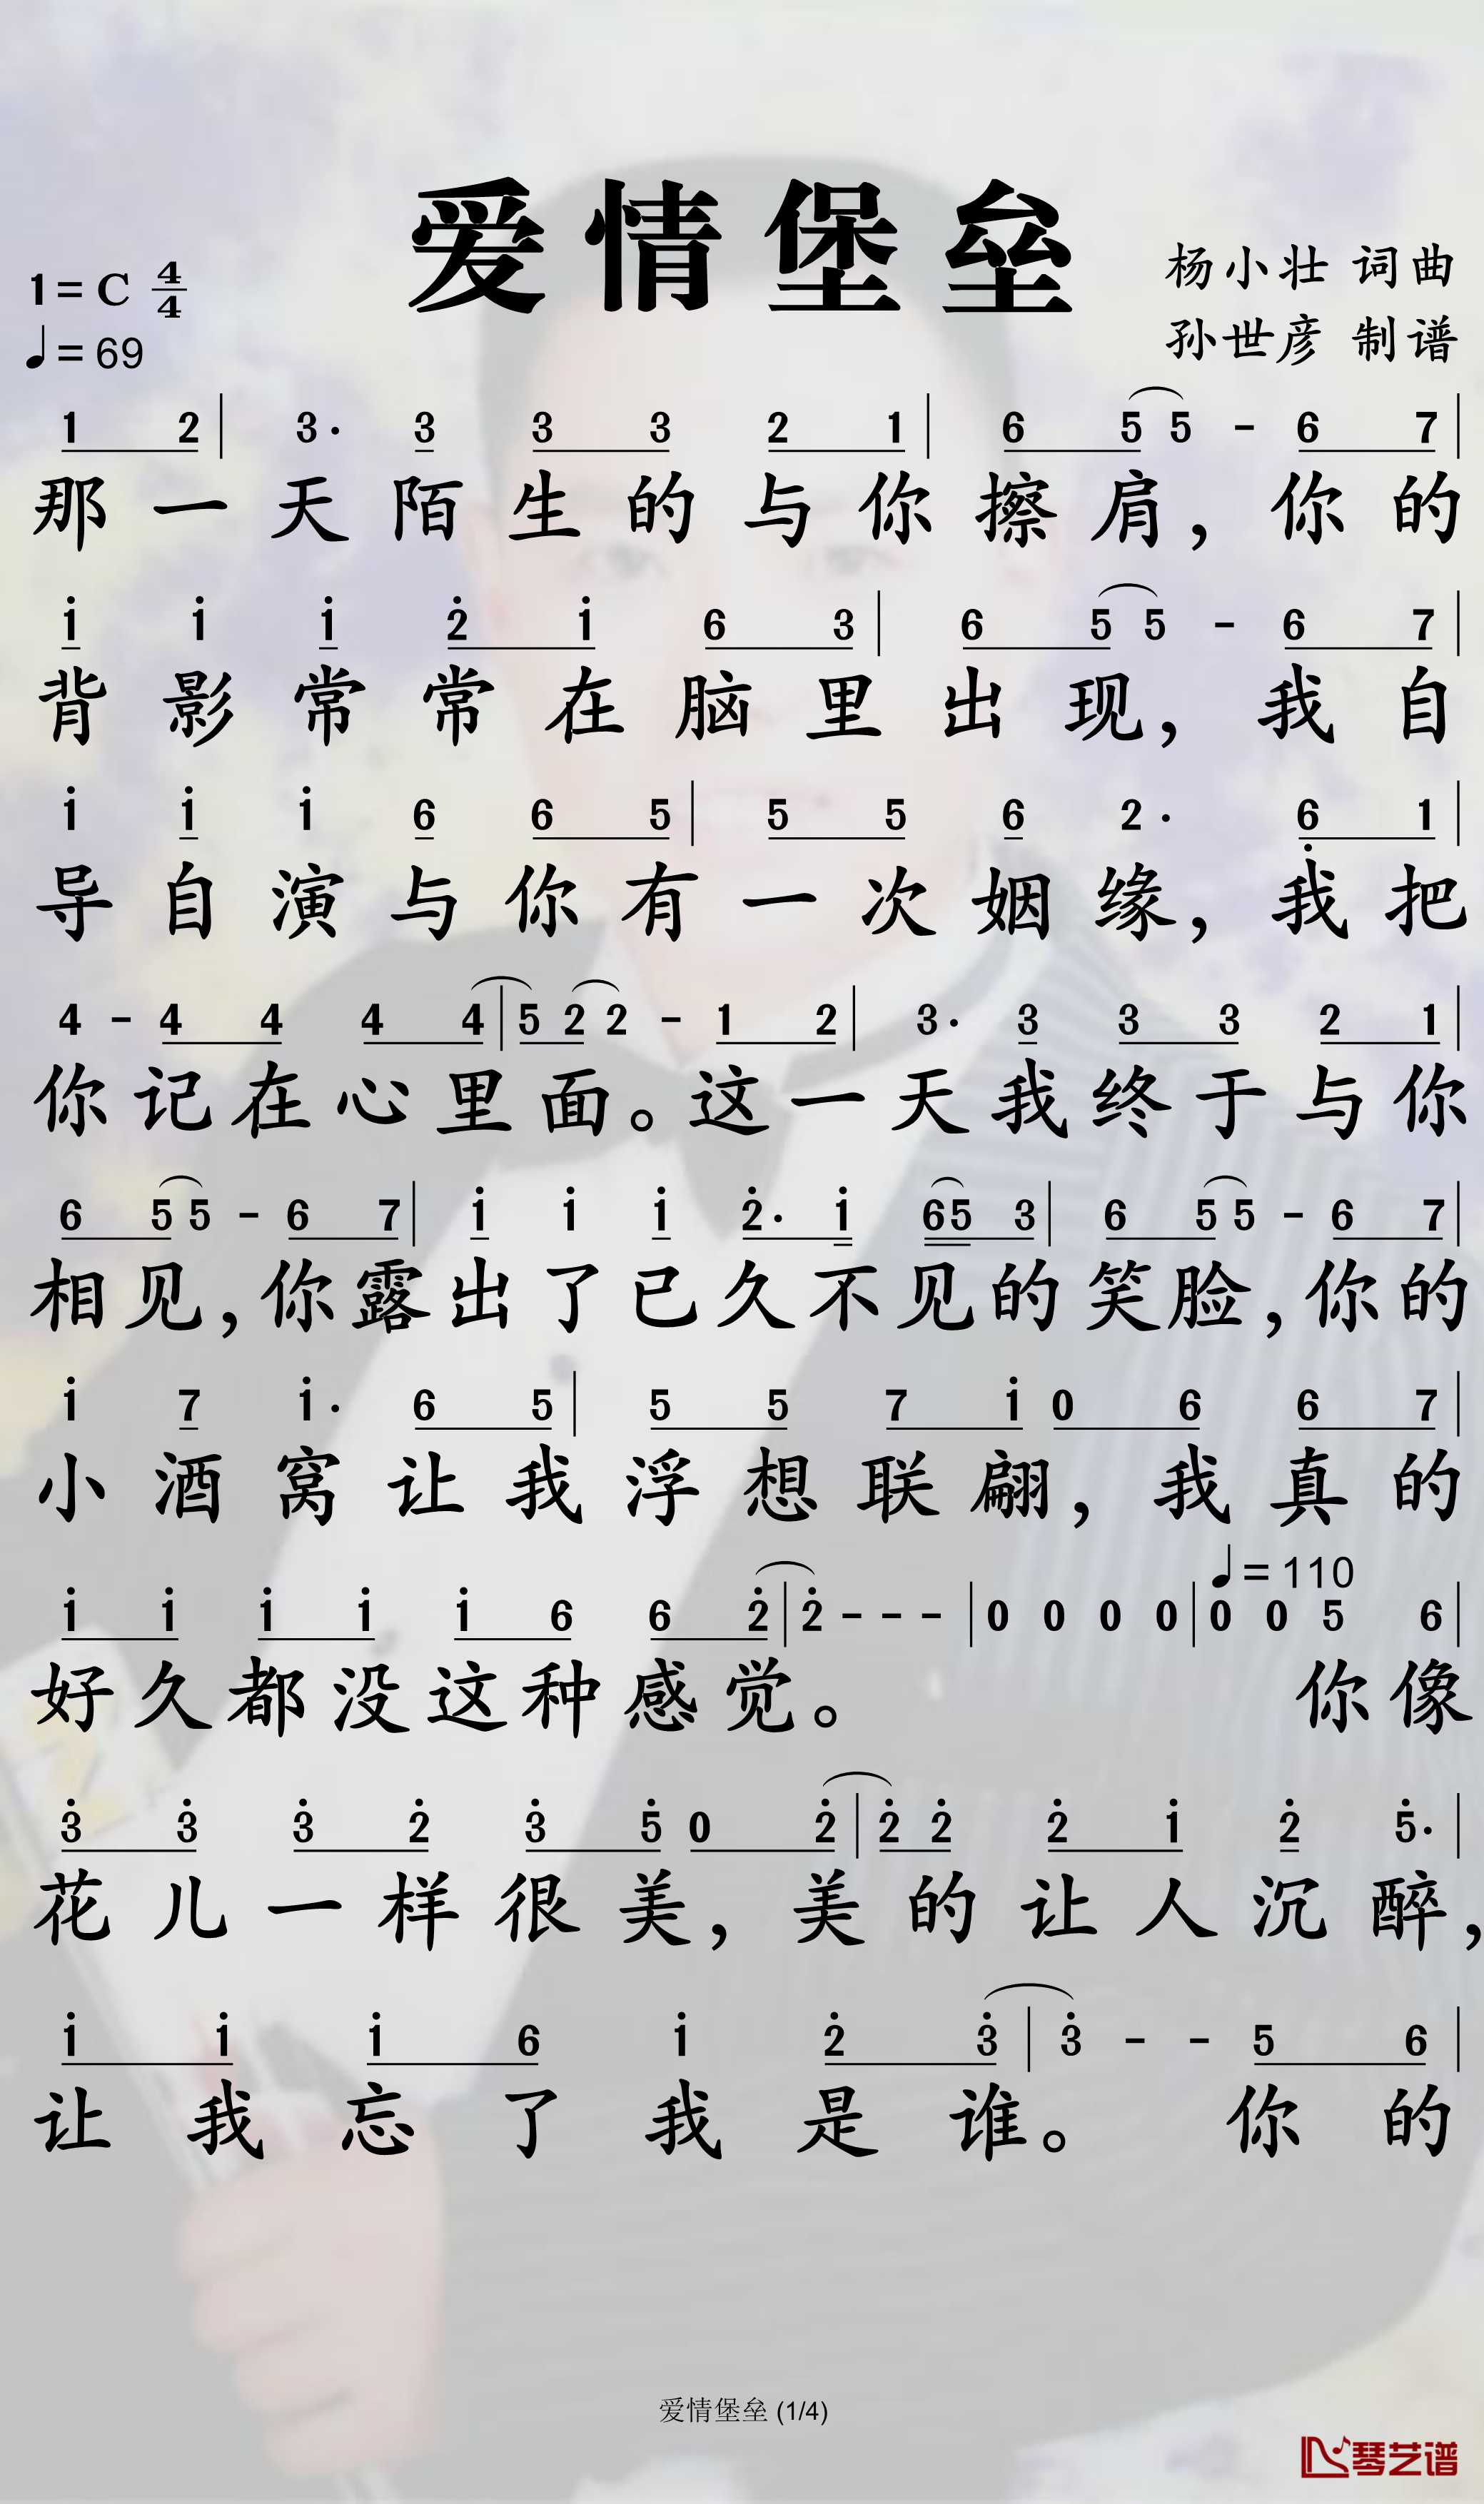 爱情堡垒
1=C 4/4
♩=69
杨小壮 词曲
孙世彦 制谱
1 2 | 3· 3 3 3 2 1 | 6 5 5 - 6 7 |
那一天陌生的与你擦肩，你的
i i i 2̇ i 6 3 | 6 5 5 - 6 7 |
背影常常在脑里出现，我自
i i i 6 6 5 | 5 5 6 2· 6̣ 1 |
导自演与你有一次姻缘，我把
4 - 4 4 4 4 | 5 2 2 - 1 2 | 3· 3 3 3 2 1 |
你记在心里面。这一天我终于与你
6 5 5 - 6 7 | i i i 2̇· i 6 5 3 | 6 5 5 - 6 7 |
相见，你露出了已久不见的笑脸，你的
i 7 i· 6 5 | 5 5 7 i 0 6 6 7 |
小酒窝让我浮想联翩，我真的
♩=110
i i i i i 6 6 2̇ | 2̇ - - - | 0 0 0 0 | 0 0 5 6 |
好久都没这种感觉。 你像
3̇ 3̇ 3̇ 2̇ 3̇ 5̇ 0 2̇ | 2̇ 2̇ 2̇ i 2̇ 5̇· |
花儿一样很美，美的让人沉醉，
i i i 6 i 2̇ 3̇ | 3̇ - - 5 6 |
让我忘了我是谁。你的
爱情堡垒 (1/4)
琴艺谱